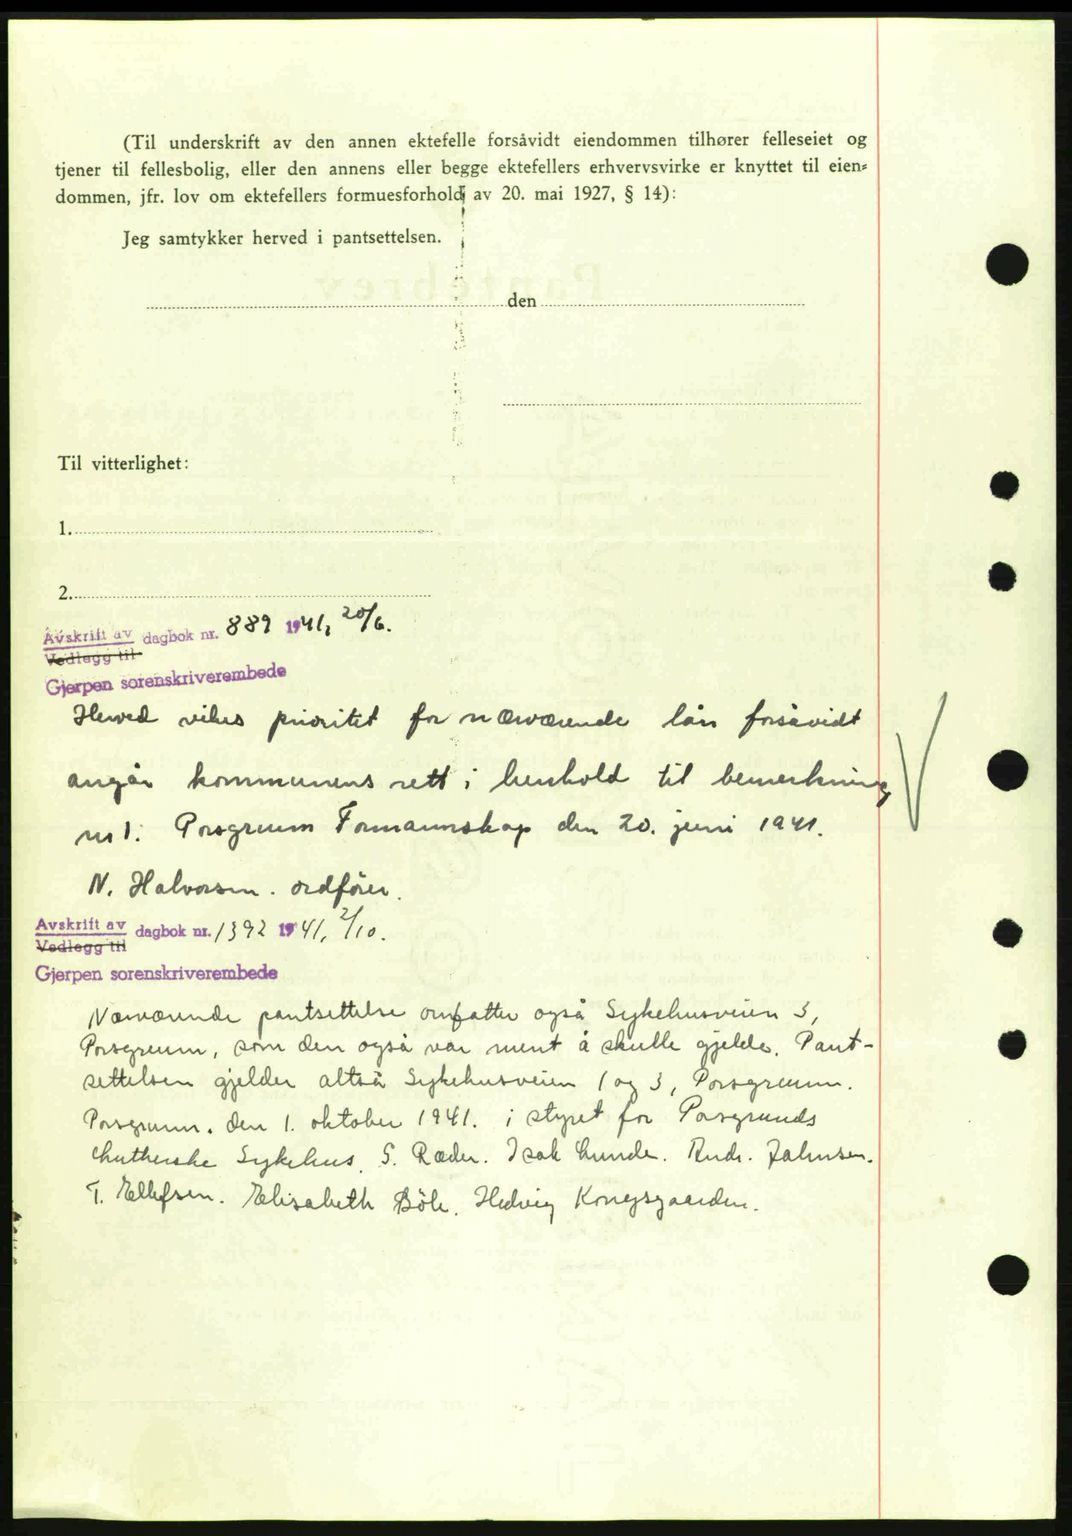 (Til underskrift av den annen ektefelle forsåvidt eiendommen tilhører felleseiet og
tjener til fellesbolig, eller den annens eller begge ektefellers erhvervsvirke er knyttet til eien=
dommen, jfr. lov om ektefellers formuesforhold av 20. mai 1927, § 14):
Jeg samtykker herved i pantsettelsen.
den
Til vitterlighet:
1.
2.
Avskrift av dagbok nr. 889 1941, 20/6.
Vedlegg til
Gjerpen sorenskriverembede
Herved vikes prioritet for nærværende lån forsåvidt
angår kommunens rett i henhold til bemerkning
nr 1. Porsgrunn Formannskap den 20. juni 1941.
N. Halvorsen. ordfører.
Avskrift av dagbok nr. 1392 1941, 2/10.
Vedlegg til
Gjerpen sorenskriverembede
Nærværende pantsettelse omfatter også Sykehusveien 3,
Porsgrunn, som den også var ment å skulle gjelde. Pant-
settelsen gjelder altså Sykehusveien 1 og 3, Porsgrunn.
Porsgrunn. den 1. oktober 1941. i styret for Porsgrunds
Lutherske Sykehus. S. Ræder. Isak Lunde. Andr. Johnsen.
T. Ellefsen. Elisabeth Böle. Hedvig Kongsgaarden.